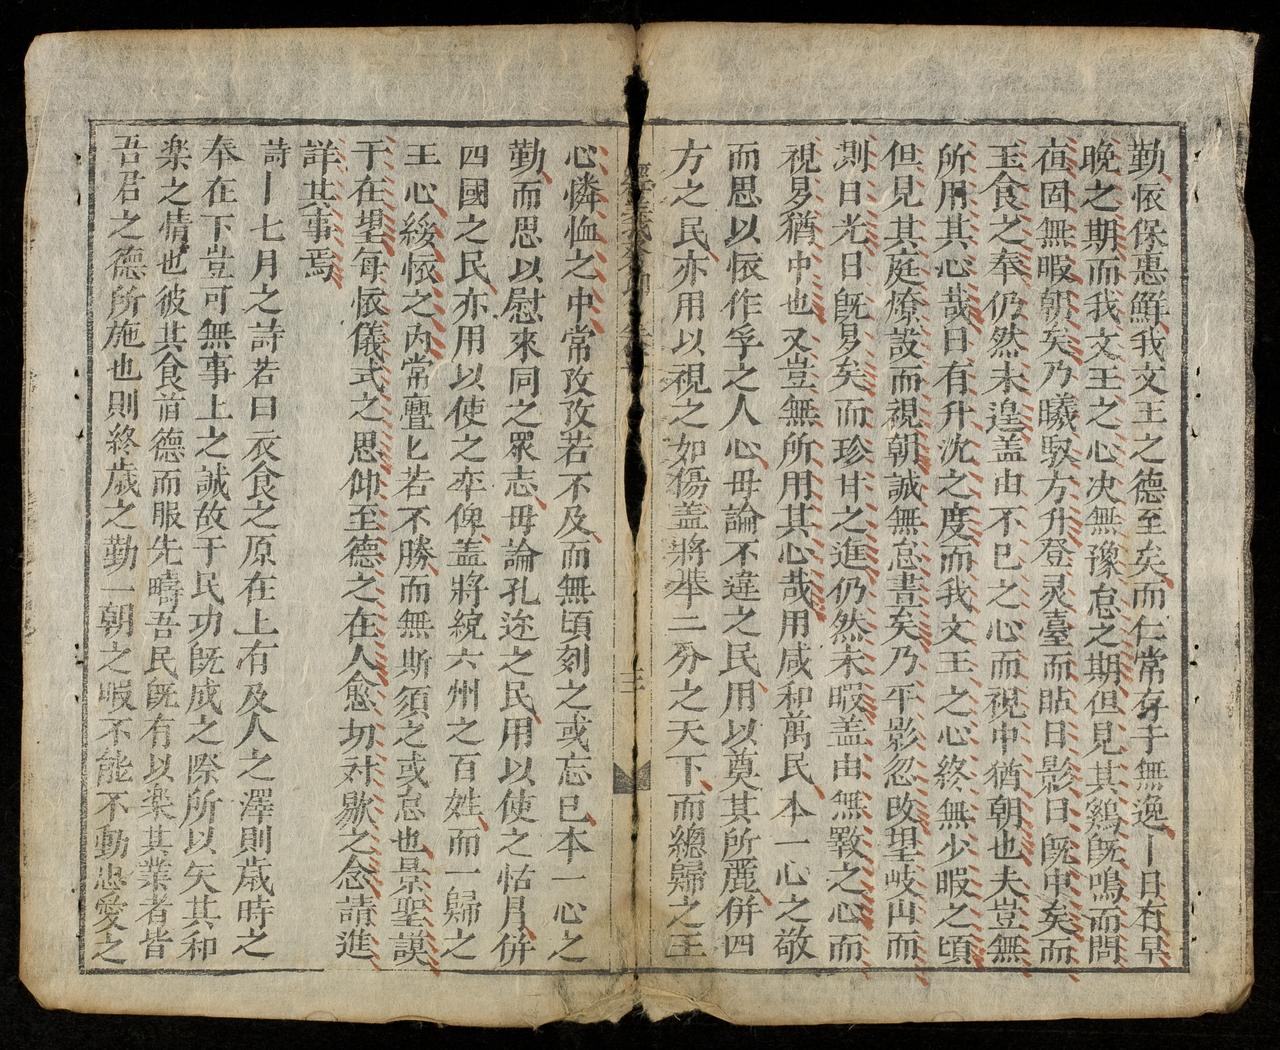 勤懷保惠鮮我文王之德至矣而仁常存于無逸丨日有早
晚之期而我文王之心决無豫怠之期但見其鷄旣鳴而問
夜固無暇朝矣乃曦馭方升登灵臺而贴日影日旣中矣而
玉食之奉仍然未遑盖由不已之心而視中猶朝也夫豈無
所用其心哉日有升沈之度而我文王之心終無少暇之頃
但見其庭燎設而視朝誠無怠書矣乃平影忽改望岐山而
則日光日旣昃矣而珍甘之進仍然未暇盖由無斁之心而
視昃猶中也又豈無所用其心哉用咸和萬民本一心之敬
而思以懷作孚之人心毋論不違之民用以奠其所麗併四
方之民亦用以視之如傷盖將举二分之天下而總歸之王
心憐恤之中常孜孜若不及而無頃刻之或忘已本一心之
勤而思以慰來同之眾志毋論孔迩之民用以使之怙冒併
四國之民亦用以使之率俾盖將統六州之百姓而一歸之
王心綏懷之内常亹匕若不勝而無斯須之或怠也景聖謨
于在望每懷儀式之思仰至德之在人愈切对歇之念請進
詳其事焉
詩丨七月之詩若曰衣食之原在上有及人之澤則歲時之
奉在下豈可無事上之誠故于民功旣成之際所以矢其和
楽之情也彼其食旧德而服先疇吾民旣有以楽其業者皆
吾君之德所施也則終歲之勤一朝之暇不能不動忠愛之